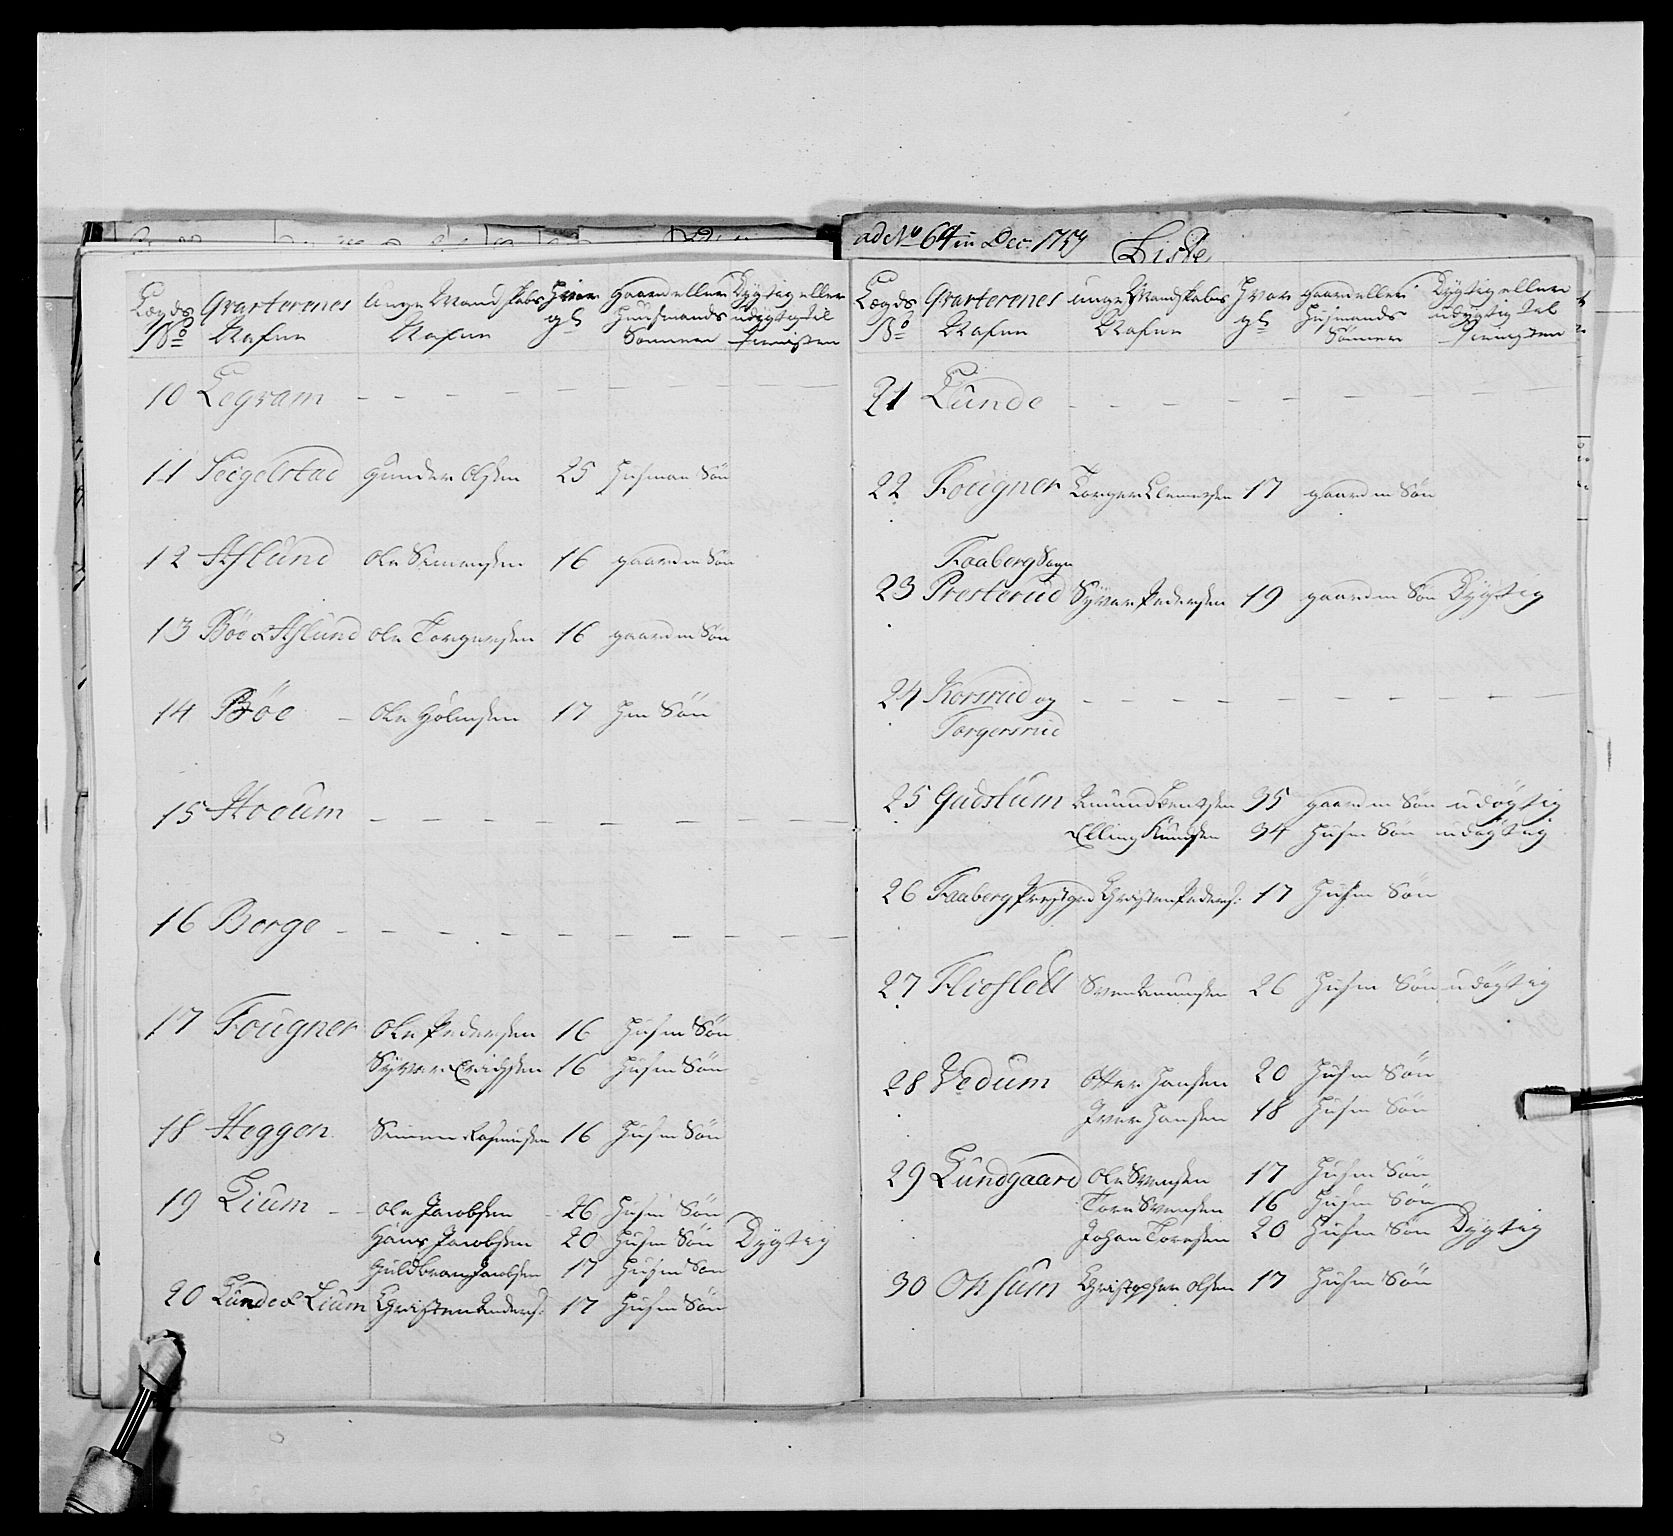 ad No 64 in Dec: 1754
Liste
Lægds No Qvarterenes Nafne Unge Mandskabs Nafne Hvor gl Gaard eller Huusmands Sønner Dygtig eller udygtig til Tienisten
10 Legram
11 Segelstad Gunder Olsen 25 Husman Søn
12 Aslund Ole Simensen 16 gaardm Søn
13 Böe & Aslund Ole Torgersen 16 gaardm Søn
14 Böe Ole 17 Hm Søn
15 Hoeum
16 Berge
17 Fougner Ole Pedersen 16 Husm Søn
Syver Erichsen 16 Husm Søn
18 Heggen Simen Rasmusen 16 Husm Søn
19 Lium Ole Jacobsen 26 Husm Søn
Hans Jacobsen 20 Husm Søn Dygtig
Guldbran Jacobsen 17 Husm Søn
20 Lunde & Lium Christen Anders: 17 Husm Søn
Lægds No Qvarterenes Nafne unge Mandskabs Nafne Hvor gl gaard eller Husmands Sønner Dygtig eller udygtig til Tienisten
21 Lunde
22 Fougner Torger Clemetsen 17 gaardm Søn
Faaberg Sogn
23 Presterud Syver Pedersen 19 gaardm Søn Dygtig
24 Korsrud og
Torgersrud
25 Gudslum Amund 35 gaardm Søn udygtig
Elling Knudsen 34 Husm Søn udygtig
26 Faaberg Prestgrd Christen Peders: 17 Husm Søn
27 Flioslett Sven Amunsen 26 Husm Søn udygtig
28 Vedum Otter Hansen 20 Husm Søn
Iver Hansen 18 Husm Søn
29 Lundgaard Ole Svensen 17 Husm Søn
Tore Svensen 16 Husm Søn
Johan Toresen 20 Husm Søn Dygtig
30 Onsum Christopher Olsen 17 Husm Søn